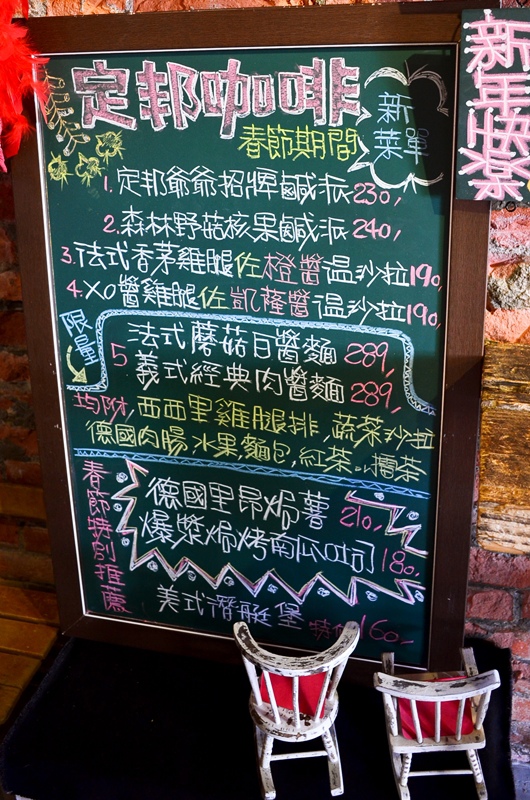 定邦咖啡
春節期間
新
菜單
1. 定邦爺爺招牌鹹派 230,
2. 森林野菇核果鹹派 240,
3. 法式香茅雞腿佐橙醬溫沙拉 190,
4. XO醬雞腿佐凱薩醬溫沙拉 190,
限量
5 法式蘑菇白醬麵 289,
義式經典肉醬麵 289,
均附,西西里雞腿排,蔬菜沙拉
德國肉腸,水果麵包,紅茶
春節特別推薦
德國里昂焗薯 210,
爆漿焗烤南瓜吐司 180,
美式潛艇堡 特価160,
新年快樂